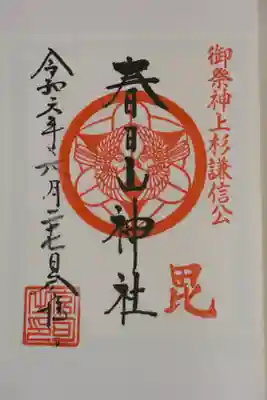 御祭神上杉謙信公
毘
春日山神社
令和元年六月二十七日参拝